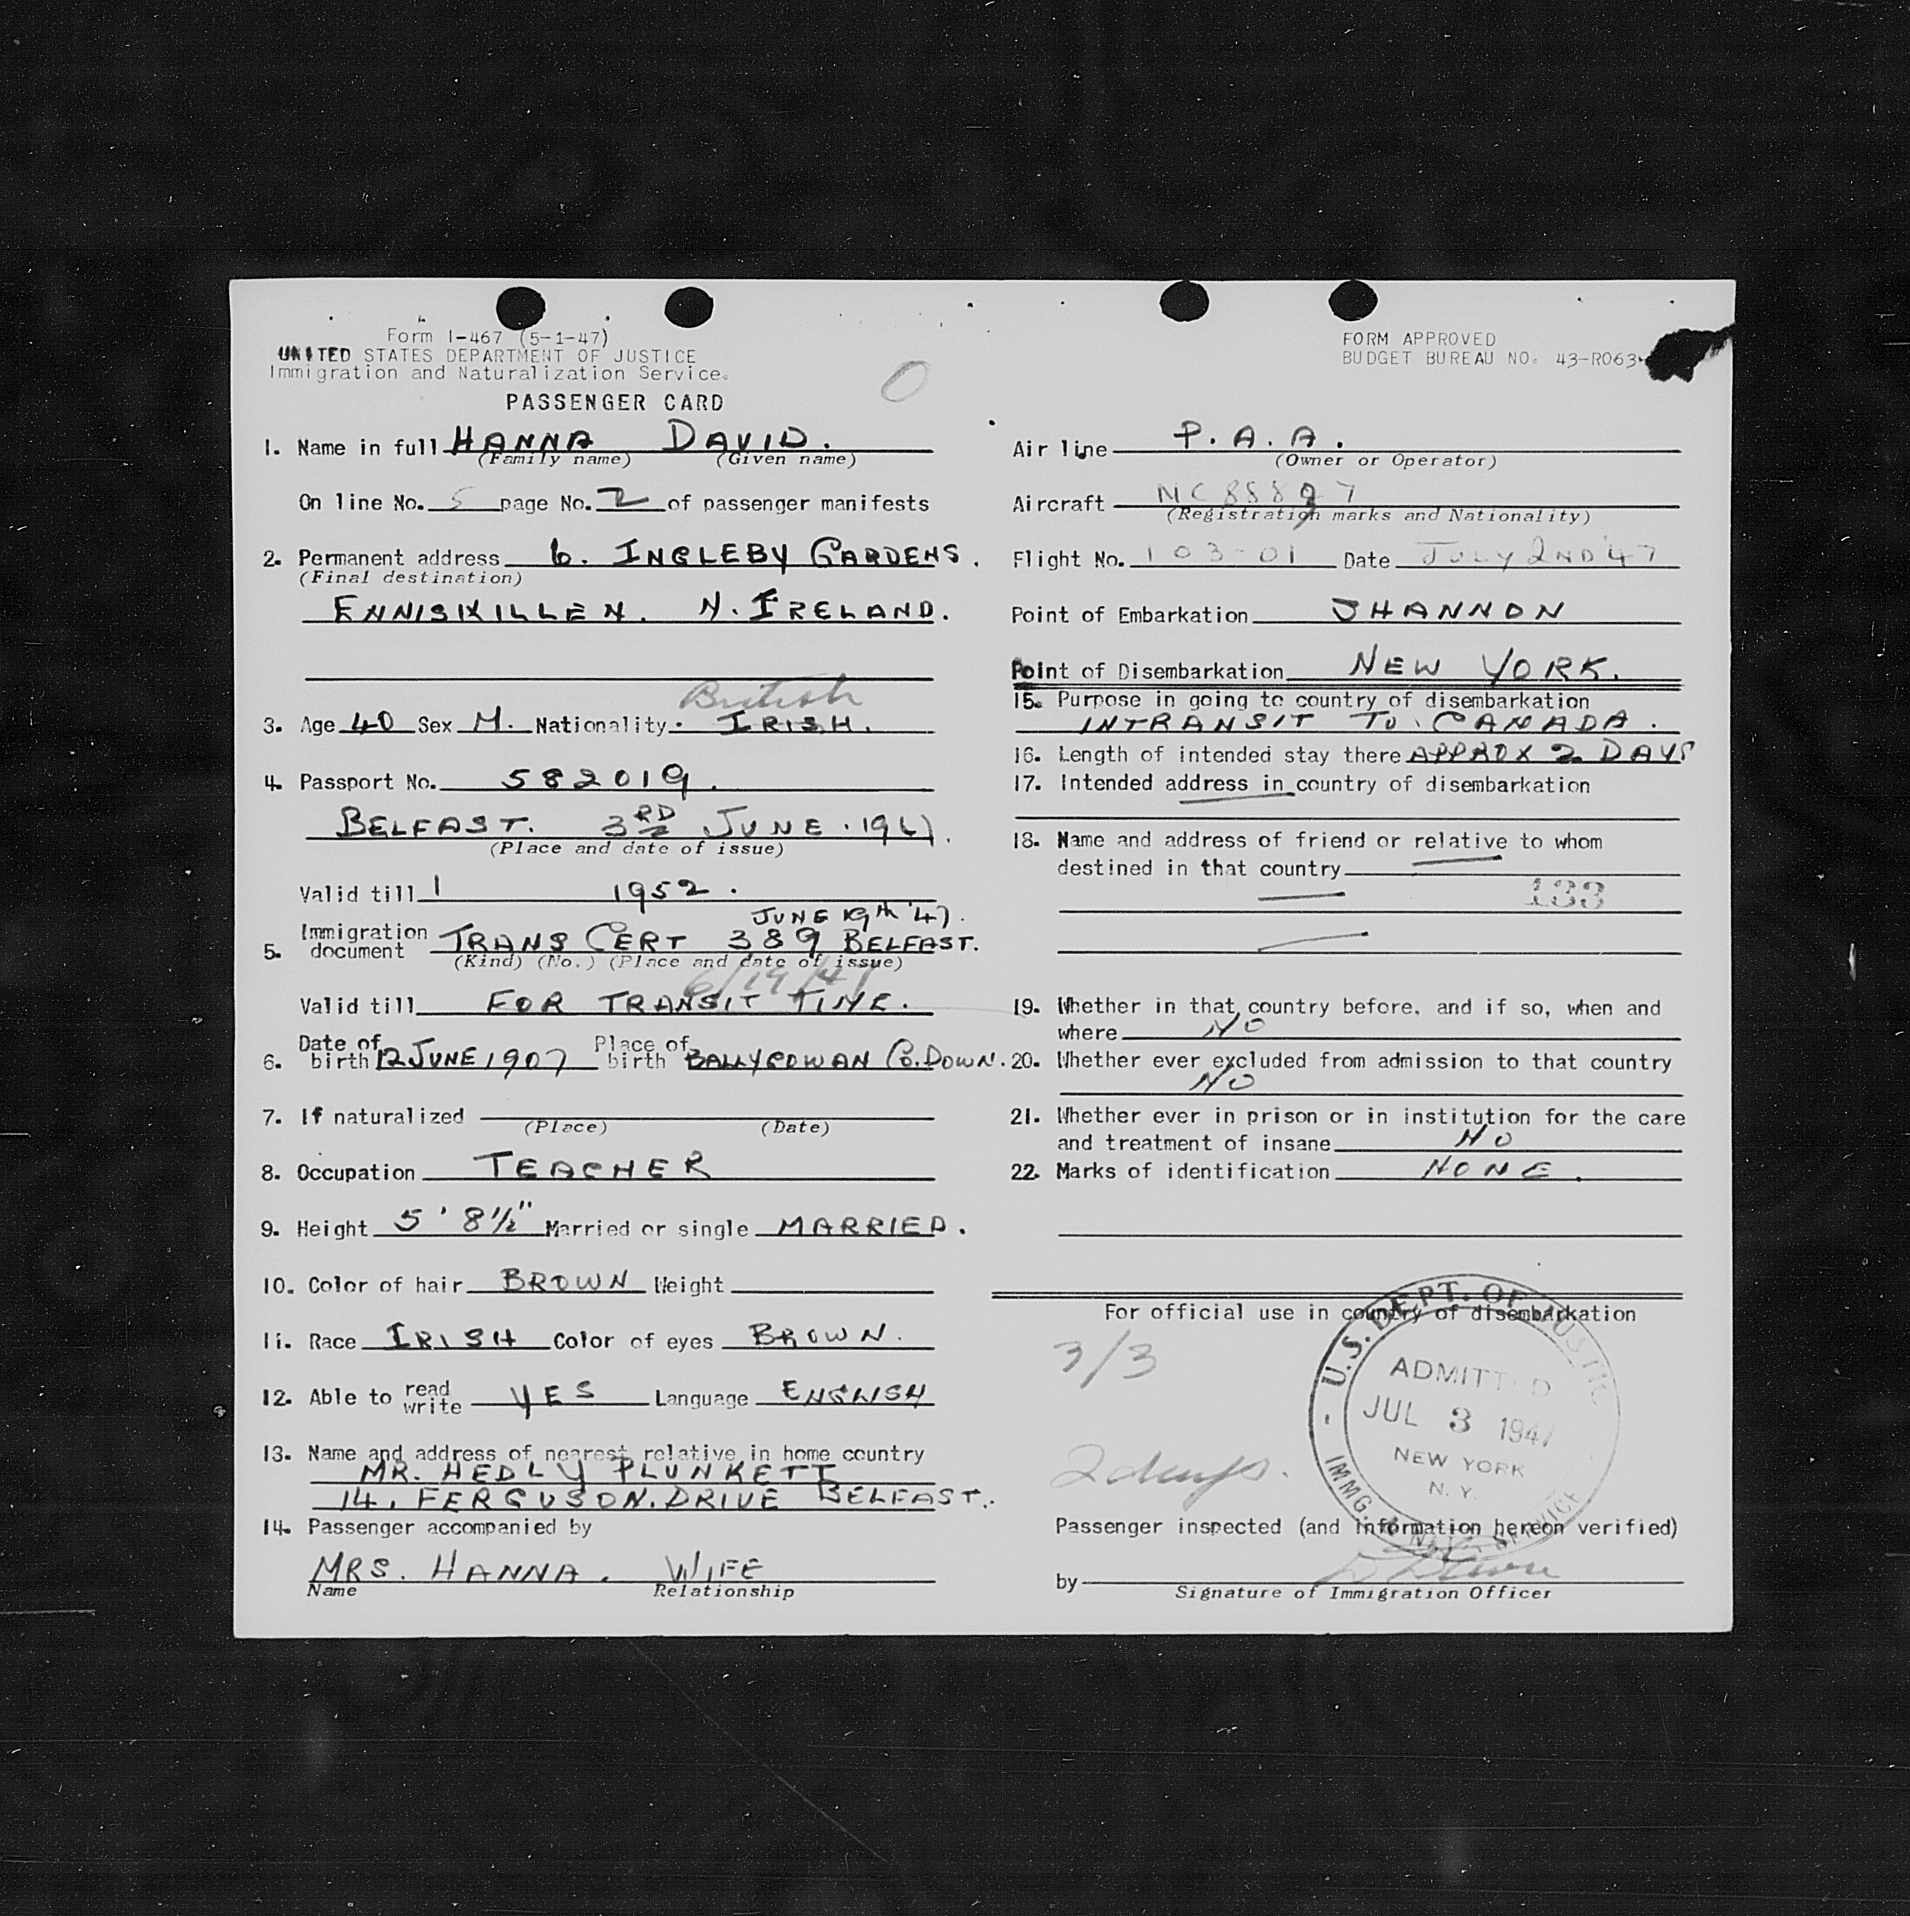 Form I-467 (5-1-47)
UNITED STATES DEPARTMENT OF JUSTICE
Immigration and Naturalization Service.
PASSENGER CARD
O
1. Name in full HANNA DAVID.
(Family name) (Given name)
On line No. 5 page No. 2 of passenger manifests
2. Permanent address 6. INGLEBY GARDENS.
(Final destination)
ENNISKILLEN. N. IRELAND.
British
3. Age 40 Sex M. Nationality. IRISH.
4. Passport No. 582019.
BELFAST. 3RD JUNE. 1947.
(Place and date of issue)
Valid till 1 1952.
JUNE 19th '47.
5. Immigration document TRANS CERT 389 BELFAST.
(Kind) (No.) (Place and date of issue)
6/19/47
Valid till FOR TRANSIT TIME.
6. Date of birth 12 JUNE 1907 Place of birth BALLYCOWAN CO. DOWN.
7. If naturalized
(Place) (Date)
8. Occupation TEACHER
9. Height 5' 8½" Married or single MARRIED.
10. Color of hair BROWN Weight
11. Race IRISH Color of eyes BROWN.
12. Able to read write YES Language ENGLISH
13. Name and address of nearest relative in home country
MR. HEDLY PLUNKETT
14, FERGUSON. DRIVE BELFAST.
14. Passenger accompanied by
MRS. HANNA. WIFE
Name Relationship
FORM APPROVED
BUDGET BUREAU NO. 43-R063
Air line P. A. A.
(Owner or Operator)
Aircraft
(Registration marks and Nationality)
Flight No. 103-01 Date JULY 2ND '47
Point of Embarkation SHANNON
Point of Disembarkation NEW YORK.
15. Purpose in going to country of disembarkation
INTRANSIT TO. CANADA.
16. Length of intended stay there APPROX 2 DAYS
17. Intended address in country of disembarkation
18. Name and address of friend or relative to whom
destined in that country
133
19. Whether in that country before, and if so, when and
where NO
20. Whether ever excluded from admission to that country
NO
21. Whether ever in prison or in institution for the care
and treatment of insane NO
22. Marks of identification NONE.
For official use in country of disembarkation
3/3
2 days.
U.S. DEPT. OF JUSTICE
ADMITTED
JUL 3 1947
NEW YORK
N. Y.
IMMG. & NAT. SERVICE
Passenger inspected (and information hereon verified)
by
Signature of Immigration Officer